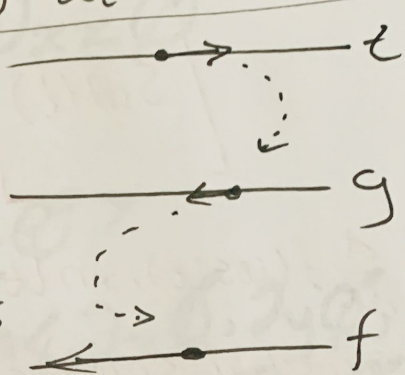 t
g
f